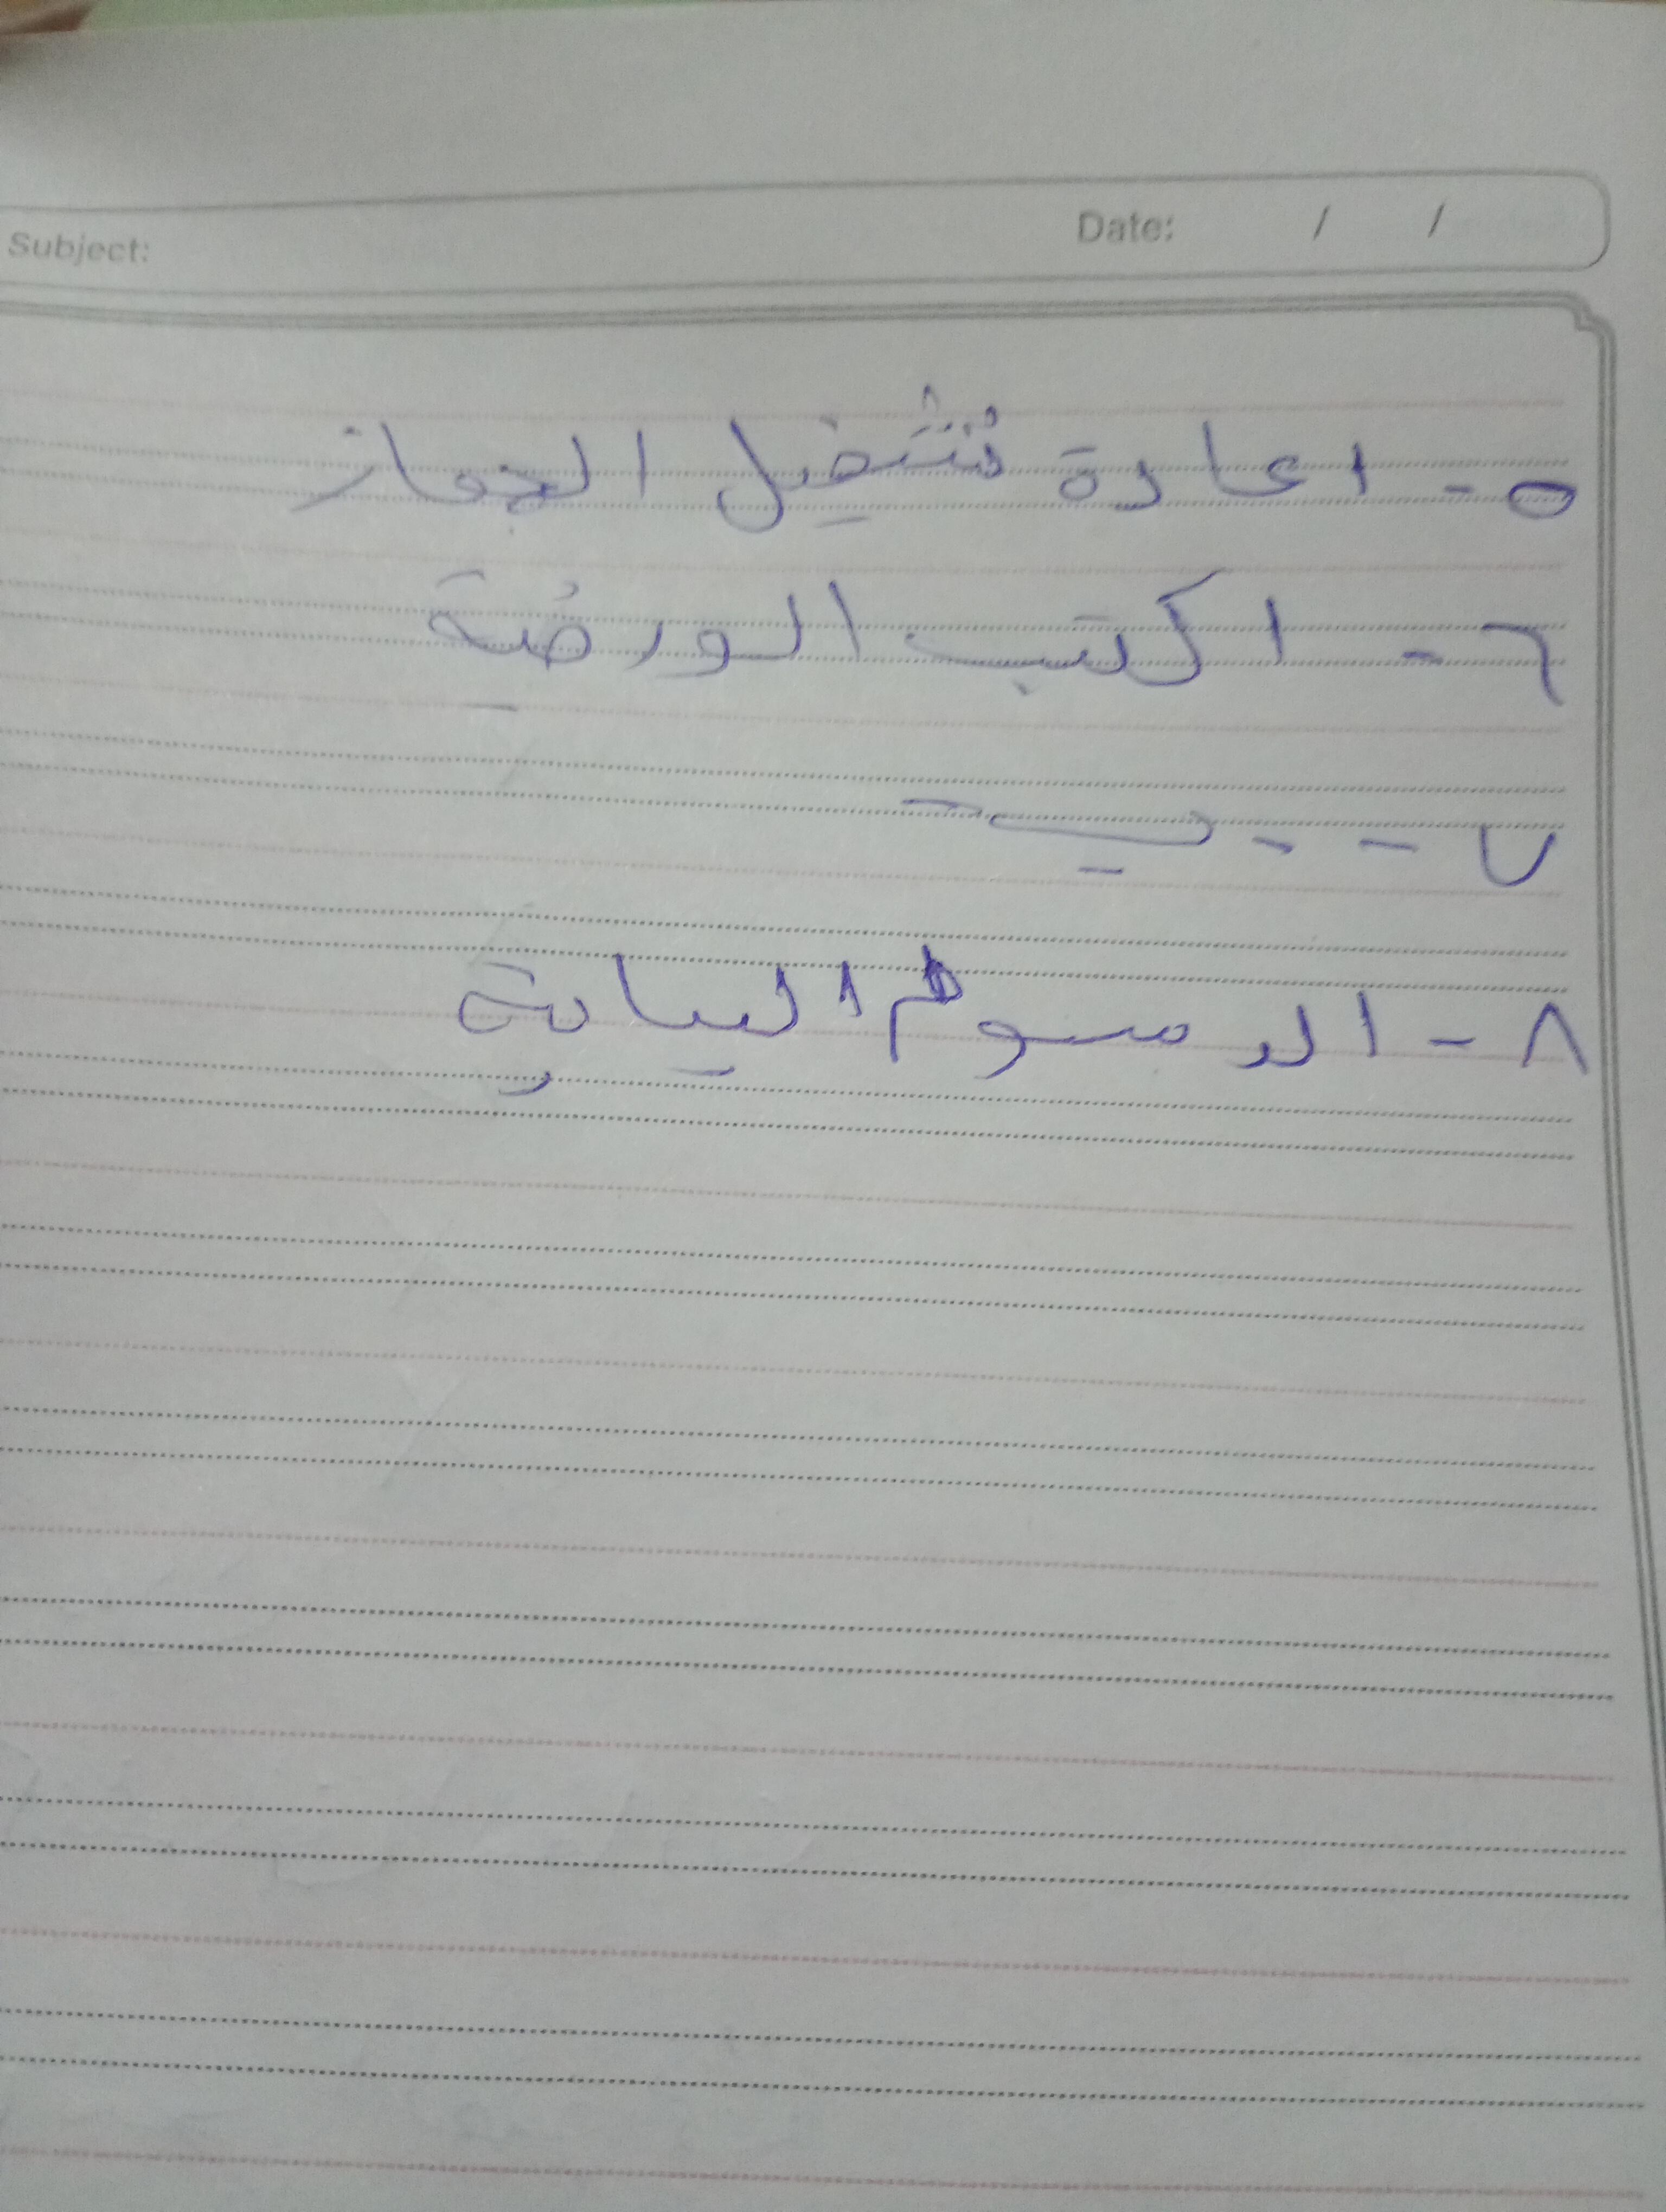 Subject:
Date: / /
٥- اعادة تشغيل الجهاز
٦- اكتب الورضية
٧-
٨- الرسوم البيانية